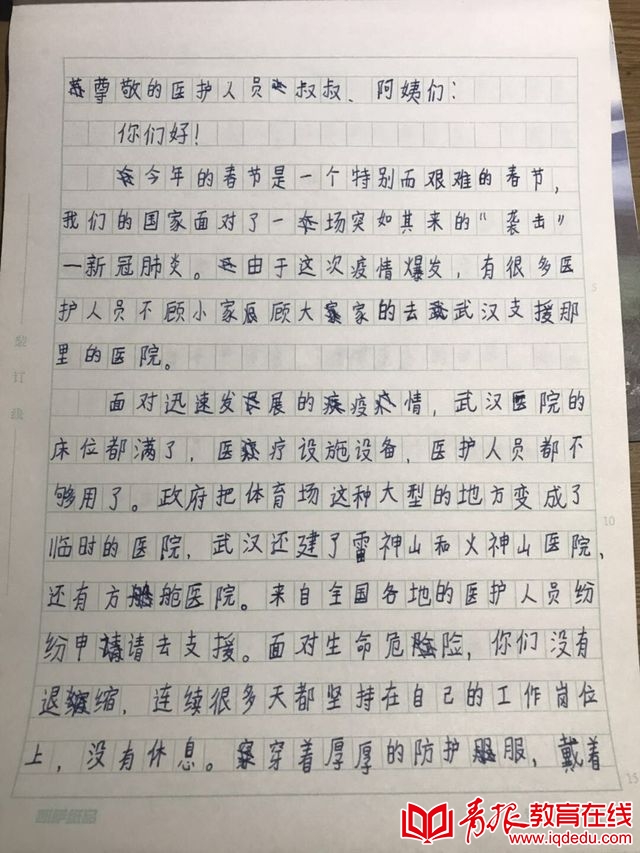 尊敬的医护人员叔叔、阿姨们：
你们好！
今年的春节是一个特别而艰难的春节，
我们的国家面对了一场突如其来的“袭击”
一新冠肺炎。由于这次疫情爆发，有很多医
护人员不顾小家顾大家的去武汉支援那
里的医院。
面对迅速发展的疫情，武汉医院的
床位都满了，医疗设施设备、医护人员都不
够用了。政府把体育场这种大型的地方变成了
临时的医院，武汉还建了雷神山和火神山医院，
还有方舱医院。来自全国各地的医护人员纷
纷申请去支援。面对生命危险，你们没有
退缩，连续很多天都坚持在自己的工作岗位
上，没有休息。穿着厚厚的防护服，戴着
装订线
5
10
15
青报教育在线
www.iqdedu.com